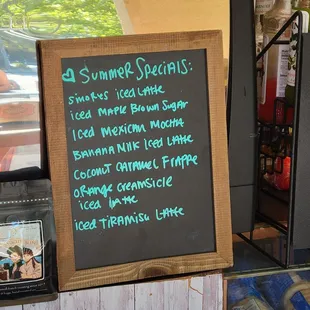 ♡ Summer Specials:
smores iced Latte
iced Maple Brown Sugar
Iced Mexican Mocha
Banana Milk Iced Latte
Coconut Caramel Frappe
orange creamsicle
iced Latte
iced Tiramisu Latte